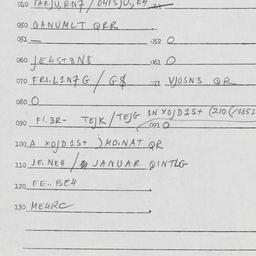 040 FARJU, RN7 / 04FSJU., E4
050 QANUMLT QRR
051 — 052 O
060 JE4ST3N8 061 O
070 FRI.L1N7G / G8 071 VJOSN3 QR
080 O
1N XOJD1S+ (210
090 F1.3R- TEJK / TEJG 091 O
100 A XOJD1S+ ) MO.NAT QR
110 JE.NE4 / JANUAR QINTLG
120 FE.. BE4
130 ME4RC